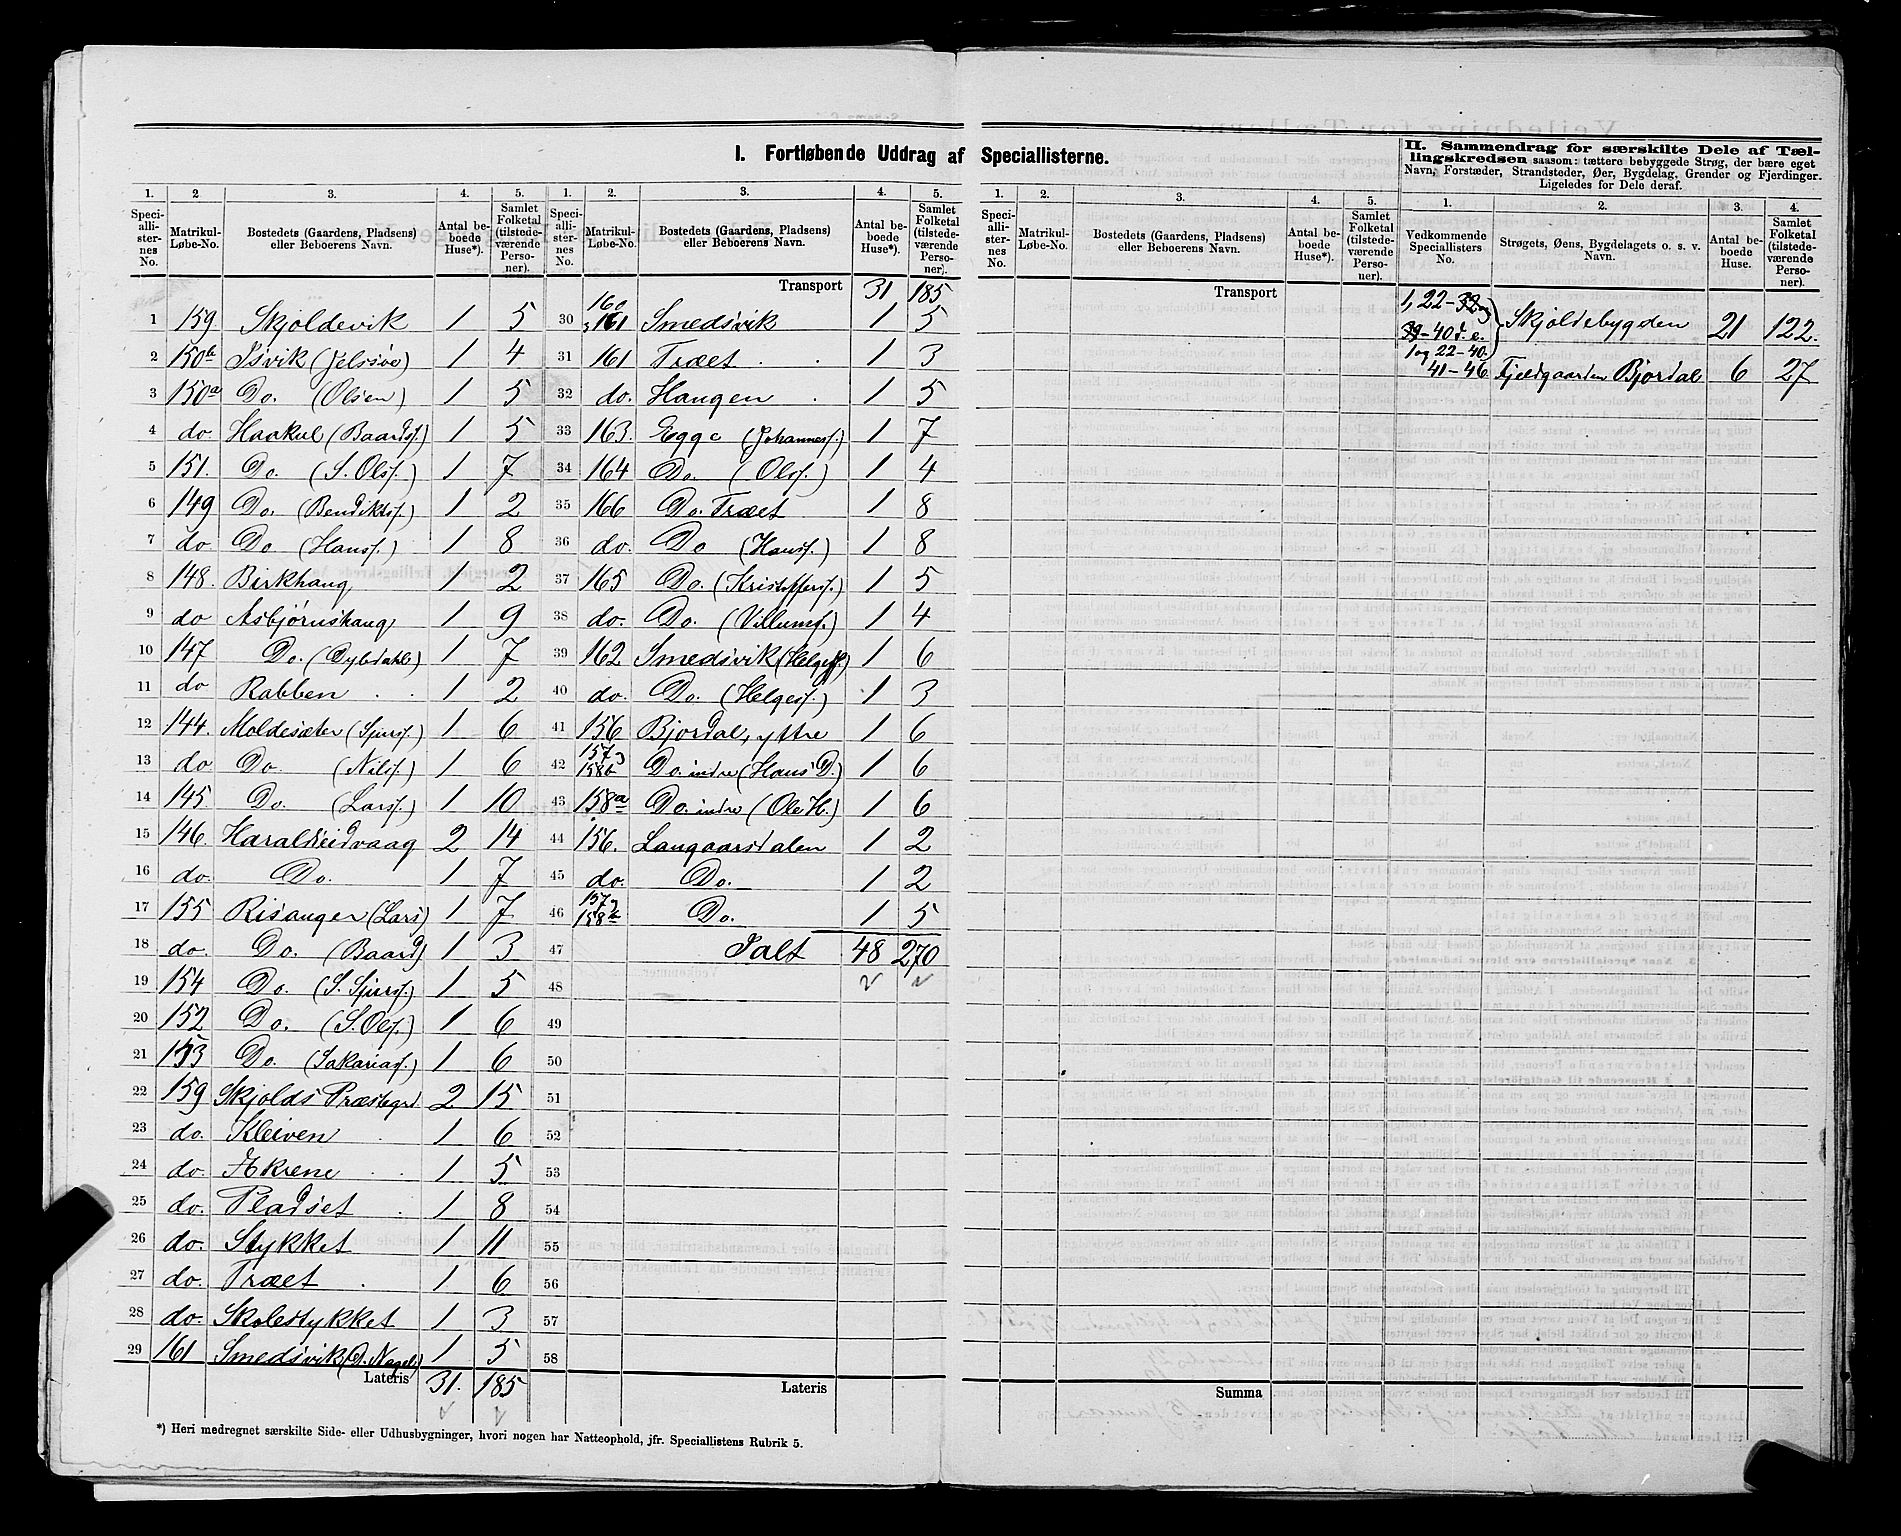 I. Fortløbende Uddrag af Speciallisterne.
II. Sammendrag for særskilte Dele af Tæl-
lingskredsen saasom: tættere bebyggede Strøg, der bære eget
Navn, Forstæder, Strandsteder, Øer, Bygdelag, Grender og Fjerdinger.
Ligeledes for Dele deraf.
1. 2 3. 4. 5.
Speciallisternes No. Matrikul-Løbe-No. Bostedets (Gaardens, Pladsens) eller Beboerens Navn. Antal beboede Huse*). Samlet Folketal (tilstedeværende Personer).
1 159 Skjoldevik 1 5
2 150b Isvik (Jelssøe) 1 4
3 150a Do. (Olsen) 1 5
4 do Haakul (Baardsf.) 1 5
5 151. Do. (S. Olsf.) 1 7
6 149 Do. (Bendiktsf.) 1 2
7 do Do (Hansf.) 1 8
8 148. Birkhaug 1 2
9 do Asbjørnshaug 1 9
10 147 Do. (Dybdahl) 1 7
11 do Rabben 1 2
12 144. Moldesæter (Sjursf.) 1 6
13 do Do (Nilsf.) 1 6
14 145 Do. (Larsf.) 1 10
15 146. Haraldseidvaag 2 14
16 do. Do. 1 7
17 155 Risanger (Lars) 1 7
18 do. Do. (Baard) 1 3
19 154 Do. (S. Sjursf.) 1 5
20 152 Do. (S. Olsf.) 1 6
21 153 Do. (Sakariasf.) 1 6
22 159 Skjolds Præstegrd 2 15
23 do. Kleiven 1 6
24 do. Akrene 1 5
25 do. Pladset 1 8
26 do. Stykket 1 11
27 do. Træet 1 6
28 do. Skolestykket 1 3
29 161 Smedsvik (D. Nagel.) 1 5
Lateris 31. 185
*) Heri medregnet særskilte Side- eller Udhusbygninger, hvori nogen har Natteophold, jfr. Speciallistens Rubrik 5.
1. 2. 3. 4. 5.
Speciallisternes No. Matrikul-Løbe-No. Bostedets (Gaardens, Pladsens) eller Beboerens Navn. Antal beboede Huse*). Samlet Folketal (tilstedeværende Personer).
Transport 31 185
30 160 og 161 Smedsvik 1 5
31 161 Træet 1 3
32 do. Haugen 1 5
33 163. Egge (Johannesf.) 1 7
34 164 Do. (Olsf.) 1 4
35 166 Do. Træet 1 8
36 do. Do (Hansf.) 1 8
37 165 Do. (Kristoffersf.) 1 5
38 do. Do. (Villumsf.) 1 4
39 162 Smedsvik (Helgesf.) 1 6
40 do. Do. (Helgesf.) 1 3
41 156 Bjordal, ytre 1 6
42 157 og 158b Do. indre (Hans D.) 1 6
43 158a Do. indre (Ole H.) 1 6
44 156. Langaarsdalen 1 2
45 do. Do. 1 2
46 157 og 158b Do. 1 5
47 Ialt 48 270
48
49
50
51
52
53
54
55
56
57
58
Lateris
1. 2. 3. 4. 5.
Speciallisternes No. Matrikul-Løbe-No. Bostedets (Gaardens, Pladsens) eller Beboerens Navn. Antal beboede Huse*). Samlet Folketal (tilstedeværende Personer).
Transport
Summa
1. 2. 3. 4.
Vedkommende Speciallisters No. Strøgets, Øens, Bygdelagets o. s. v. Navn. Antal beboede Huse. Samlet Folketal (tilstedeværende Personer).
1, 22-32 og
39-40 d. e.
1 og 22-40. Skjoldebygden 21 122.
41-46. Fjeldgaarden Bjordal 6 27